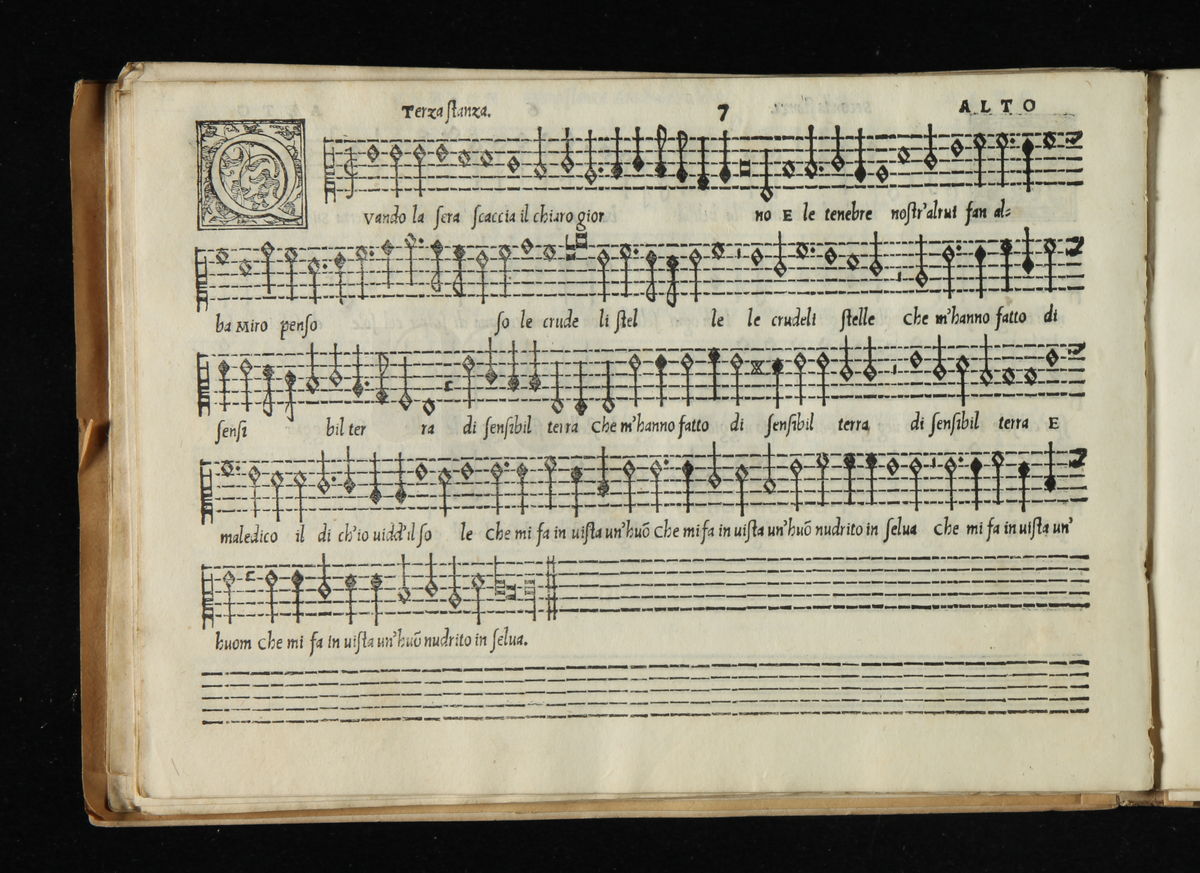 Terza stanza. 7 ALTO
QVando la sera scaccia il chiaro gior no E le tenebre nostr'altrui fan al-
ba Miro penso so le crude li stel le le crudeli stelle Che m'hanno fatto di
sensi bil ter ra di sensibil terra Che m'hanno fatto di sensibil terra di sensibil terra E
maledico il di ch'io uidd'il so le Che mi fa in uista un'huõ Che mi fa in uista un'huõ nudrito in selua Che mi fa in uista un'
huom Che mi fa in uista un'huõ nudrito in selua.